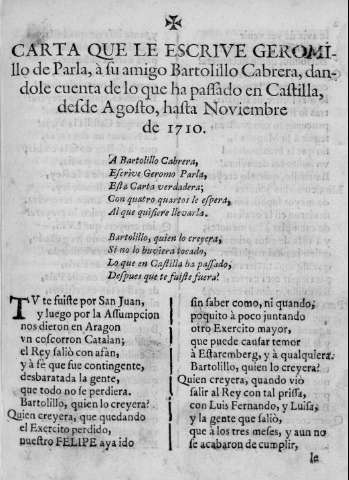 CARTA QUE LE ESCRIVE GEROMI-
llo de Parla, à su amigo Bartolillo Cabrera, dan-
dole cuenta de lo que ha passado en Castilla,
desde Agosto, hasta Noviembre
de 1710.
A Bartolillo Cabrera,
Escrive Geromo Parla,
Esta Carta verdadera;
Con quatro quartos le espera,
Al que quisiere llevarla.
Bartolillo, quien lo creyera,
Si no lo huviera tocado,
Lo que en Castilla ha passado,
Despues que te fuiste fuera?
TV te fuiste por San Juan,
y luego por la Assumpcion
nos dieron en Aragon
vn coscorron Catalan;
el Rey saliò con afàn,
y à fè que fue contingente,
desbaratada la gente,
que todo no se perdiera.
Bartolillo, quien lo creyera?
Quien creyera, que quedando
el Exercito perdido,
nuestro FELIPE aya ido
sin saber como, ni quando;
poquito à poco juntando
otro Exercito mayor,
que puede causar temor
à Estaremberg, y à qualquiera.
Bartolillo, quien lo creyera?
Quien creyera, quando viò
salir al Rey con tal prissa,
con Luis Fernando, y Luisa,
y la gente que saliò,
que à los tres meses, y aun no
se acabaron de cumplir,
se